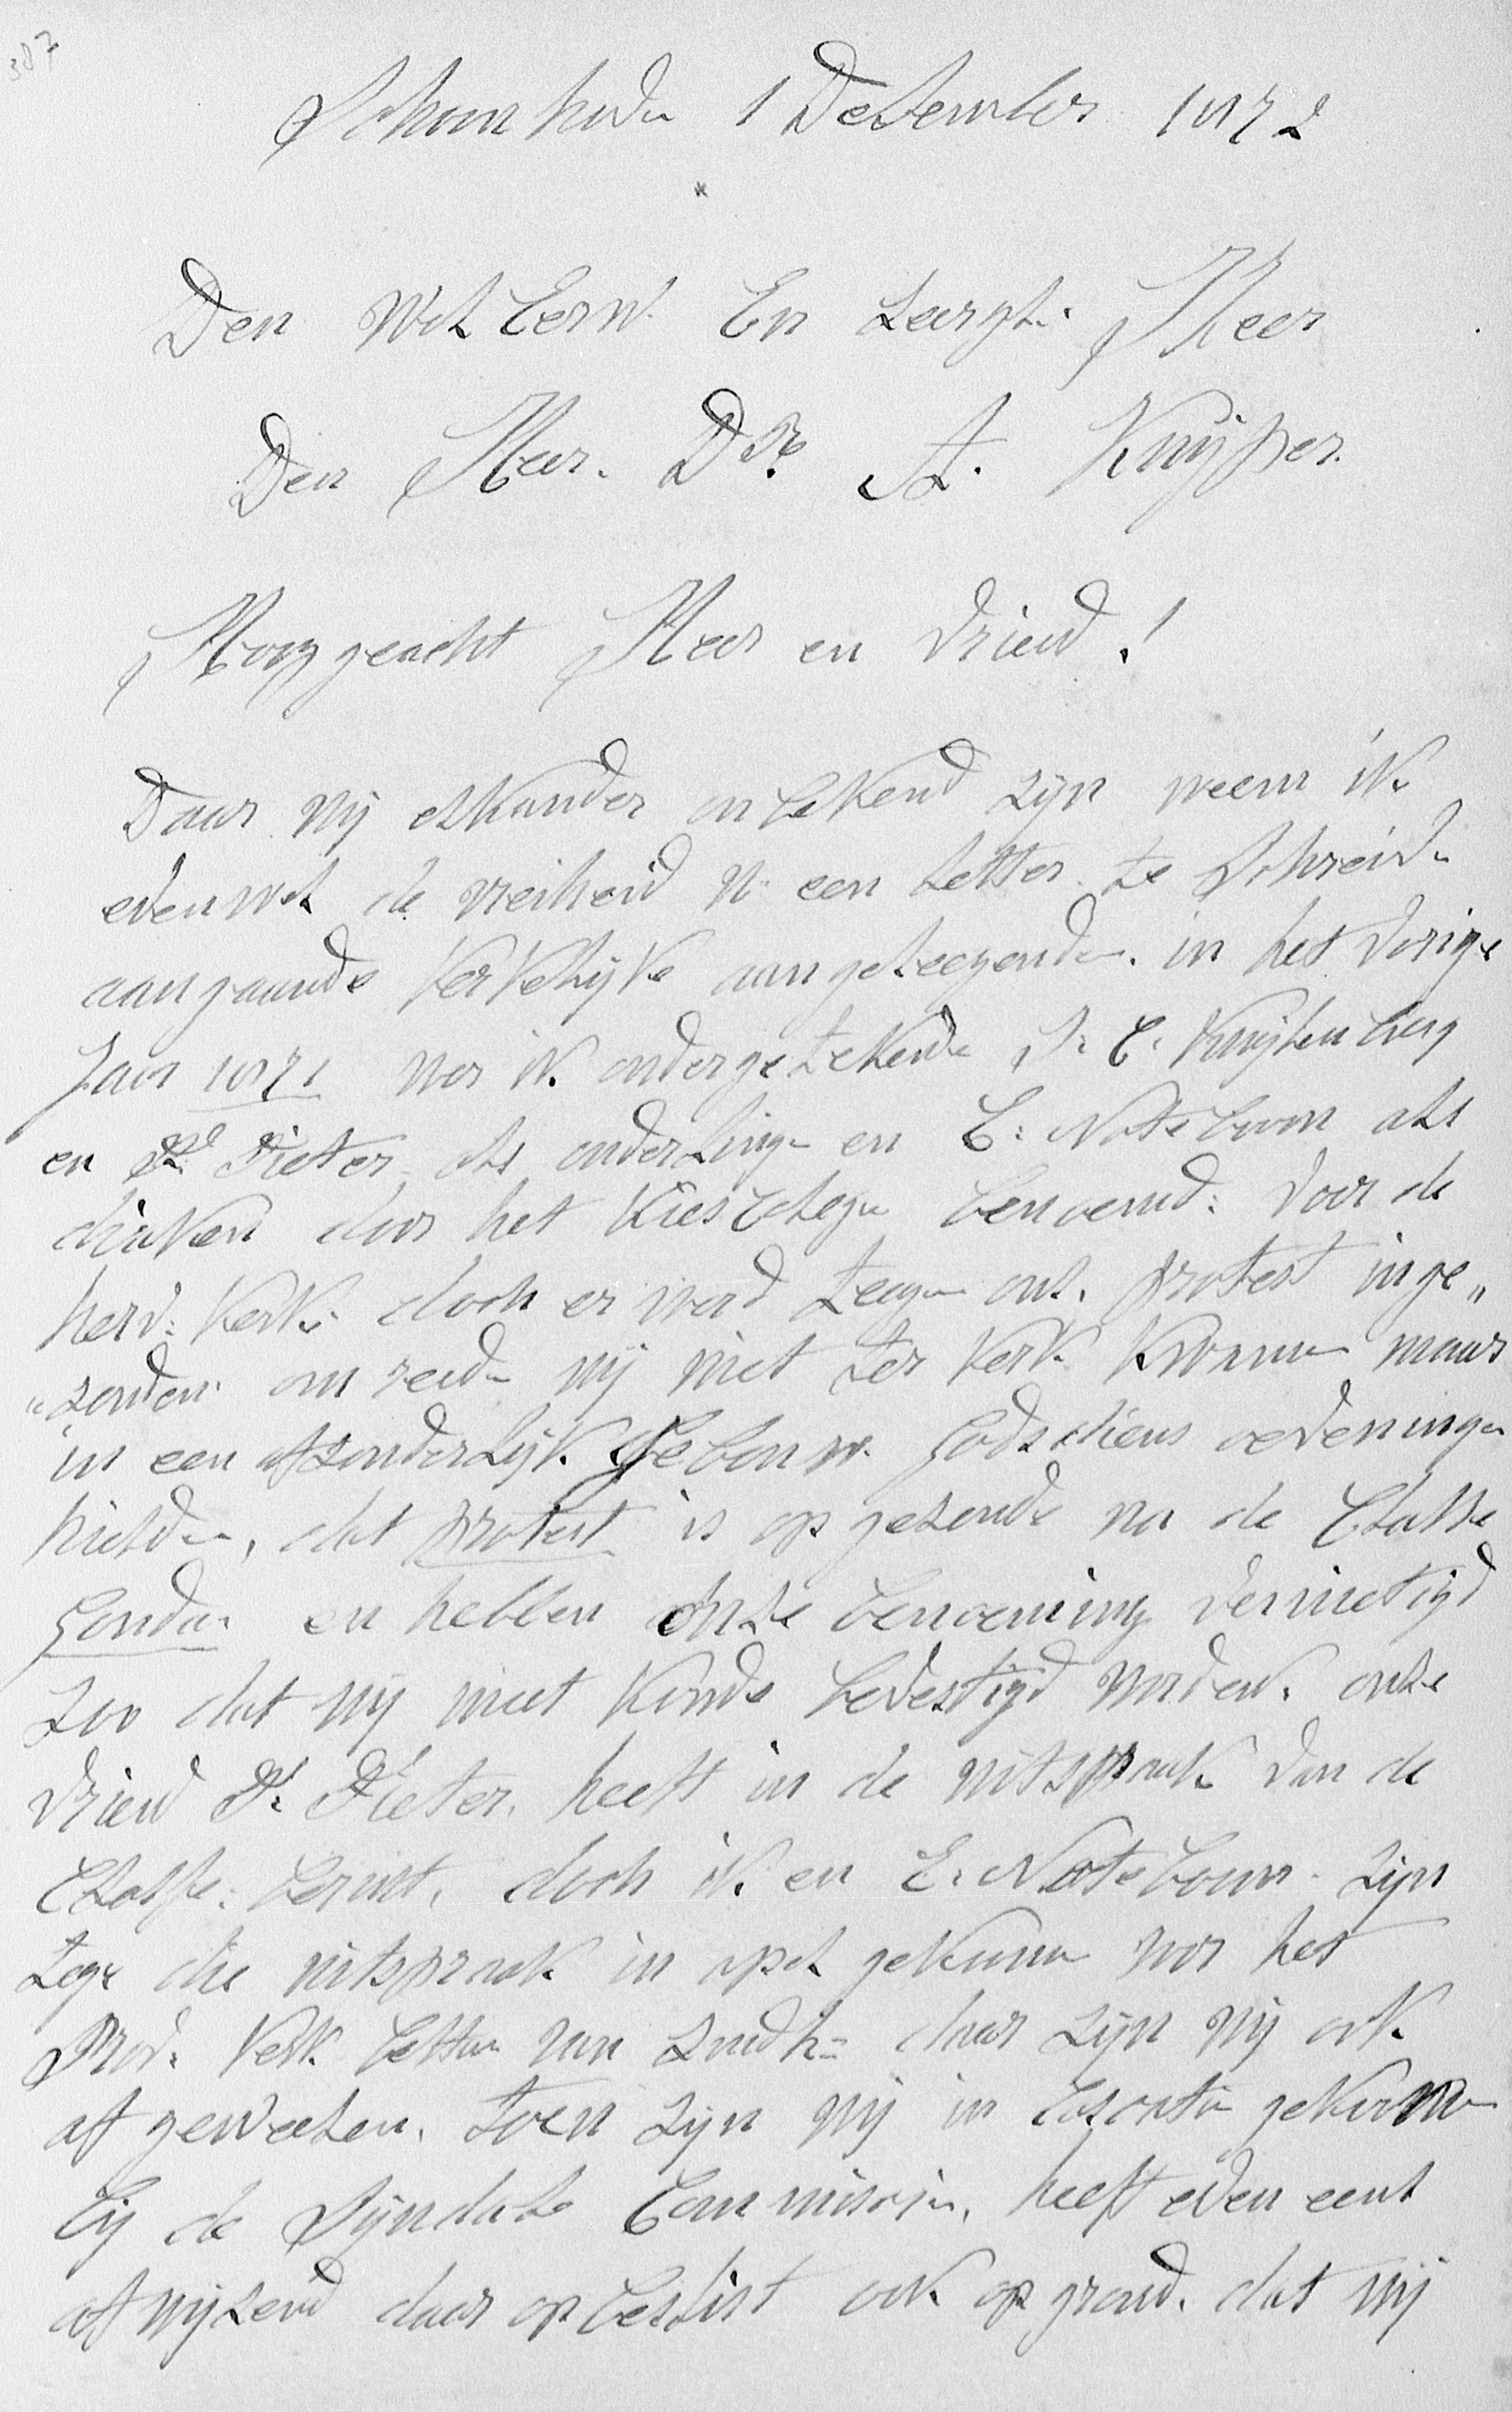 307
Schoonhoven 1 December 1872
Den Wel Eerw. En Zeergel. Heer
Den Heer. Dr. A. Kuijper.
Hoog geacht Heer en Vriend!
Daar wij elkander onbekend zijn neem ik
evenwel de vreiheid U een letter te Schreiven
aangaande Kerkelijke aangeleegenden. in het vorige
Jaar 1871 wer ik ondergetekende J. C. Kuijlenburg
en P. Pieter als ouderling en C: Noteboom als
diaken door het Kiescolege benoemd: voor de
herv: Kerk. doch er werd teegen ons. protest inge„
„zonden om reede wij niet ter Kerk Kwamen maar
in een afzonderlijk Gebouw Godsdiens oeveninge
hielden, dat protest is op gezonde na de Classe
Gouda en hebben onze benoeming vernietigd
zoo dat wij niet konde bevestigd worden. onze
vriend P. Pieter. heeft in de uitspraak van de
Classe: berust, doch ik en C. Noteboom zijn
tege die uitspraak in apel gekomen voor het
Prov. Kerk. bestuur van Zuidh= daar zijn wij ook
af geweezen. toen zijn wij in Casatie gekomen
bij de Sijnodale Commissie, heeft even eens
afwijzend daar op beslist ook op grond. dat wij